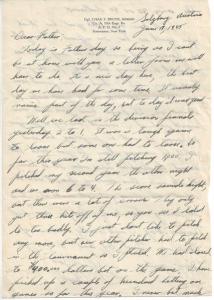 Salzburg Austria
June 17, 1945
Dear Father:
Today is Father's day so being as I can't
be at home with you a letter from me will
have to do. It's a nice day here, the first
day we have had for some time. It usually
rains part of the day, but to day it was good.
Well, we lost in the division finals
yesterday 2 to 1. It was a tough game
to lose but some one had to lose. So
far this year I'm still pitching 1000. I
pitched my second game the other night
and we won 6 to 4. The score sounds tight,
but there were a lot of errors. They only
got three hits off of me, so you see I didn't
do too badly. I just don't like to pitch
any more, but our other pitcher had to pitch
in the tournament so I pitched. We had closed
to $400.00 dollars bet on the game. I have
picked up a couple of hundred betting on
games so far this year.